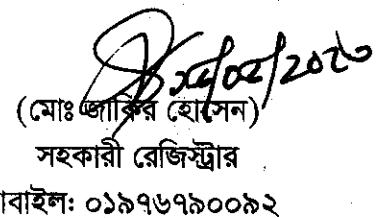 (মোঃ জাকির হোসেন)
সহকারী রেজিস্ট্রার
াবাইল: ০১৯৭৬৭৯০০৯২